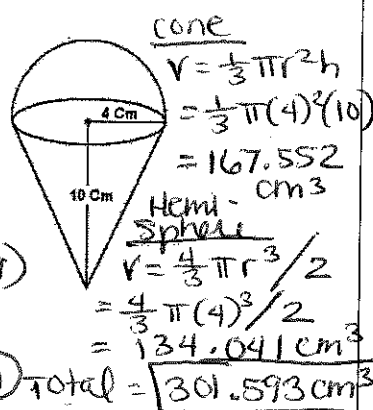 cone
V = 1/3 πr²h
4 Cm
= 1/3 π(4)²(10)
= 167.552
cm³
10 Cm
Hemi-
Sphere
V = 4/3 πr³/2
= 4/3 π(4)³/2
= 134.041 cm³
Total = 301.593 cm³